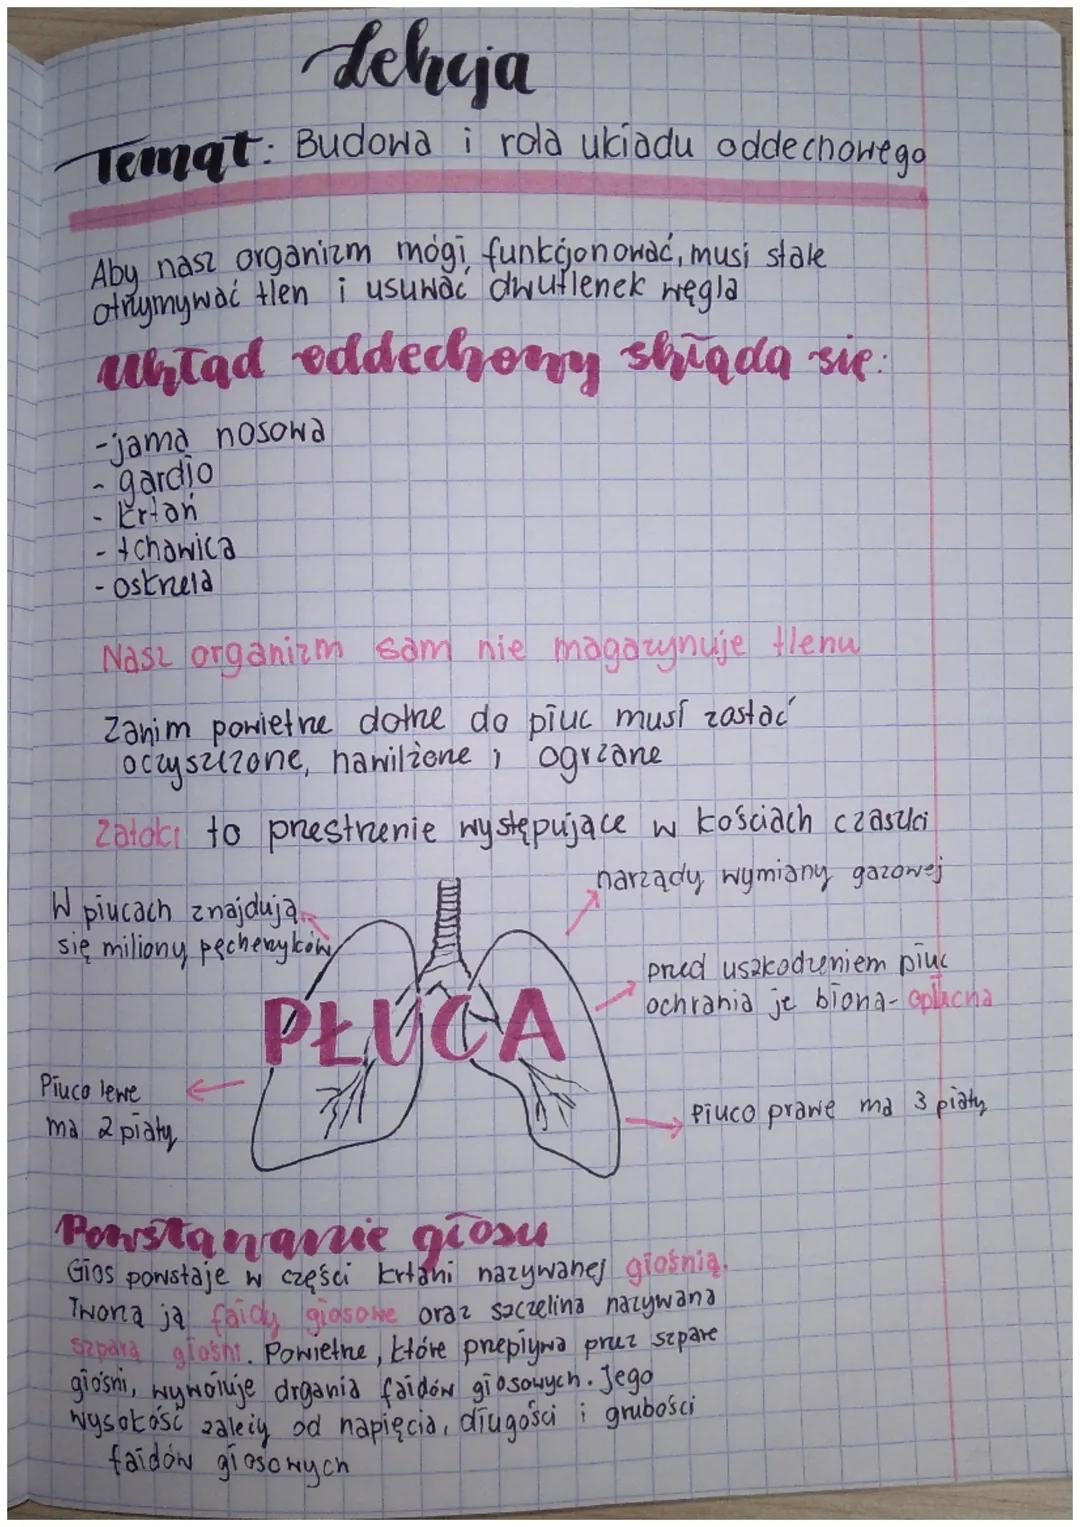 Lekcja
Temat: Budowa i rola układu oddechowego
Aby nasz organizm mógł funkcjonować, musi stale
otrzymywać tlen i usuwać dwutlenek węgla
Układ oddechowy składa się:
- jama nosowa
- gardło
- krtań
- tchawica
- oskrzela
Nasz organizm sam nie magazynuje tlenu
Zanim powietrze dotrze do płuc musi zostać
oczyszczone, nawilżone i ogrzane
Zatoki to przestrzenie występujące w kościach czaszki
narządy wymiany gazowej
W płucach znajdują
się miliony pęcherzyków
przed uszkodzeniem płuc
ochrania je błona - opłucna
PŁUCA
Płuco lewe
ma 2 płaty
Płuco prawe ma 3 płaty
Powstawanie głosu
Głos powstaje w części krtani nazywanej głośnią.
Tworzą ją fałdy głosowe oraz szczelina nazywana
szparą głośni. Powietrze, które przepływa przez szparę
głośni, wywołuje drgania fałdów głosowych. Jego
wysokość zależy od napięcia, długości i grubości
fałdów głosowych